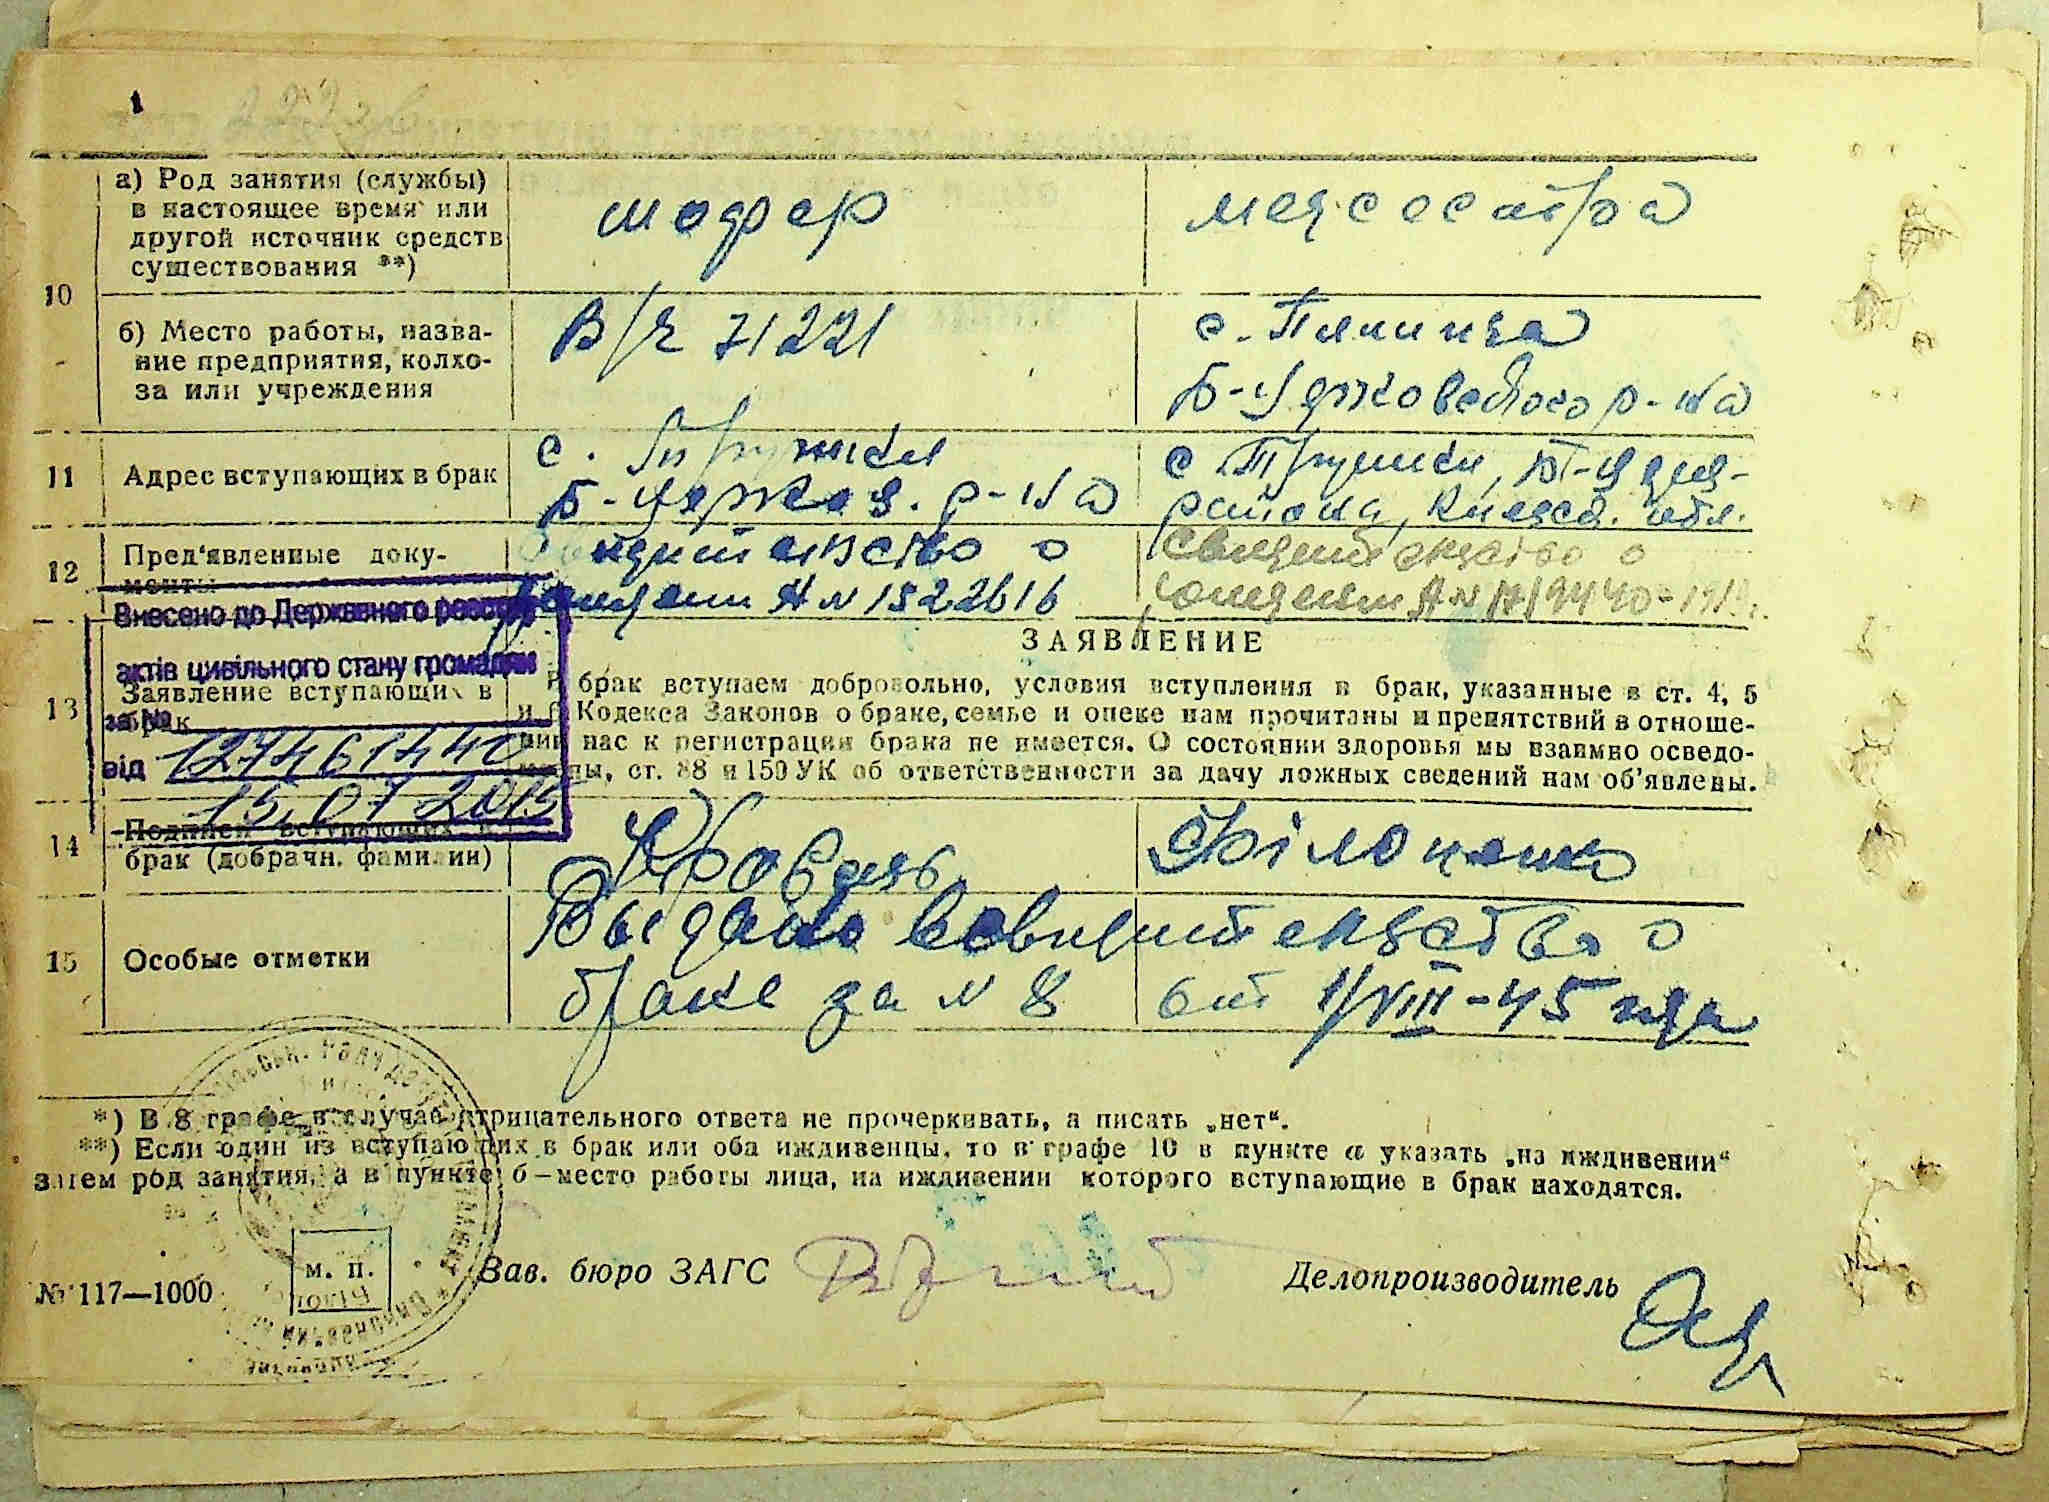 1
10
а) Род занятия (службы)
в настоящее время или
другой источник средств
существования **)
шофер
медсестра
б) Место работы, назва-
ние предприятия, колхо-
за или учреждения
В/ч 71221
с.
Б-Церковского р-на
11
Адрес вступающих в брак
с. Трушки
Б-Церков. р-на
с. Трушки, Б-Церк-
района, Киевск. обл.
12
Пред'явленные доку-
менты
о
рождении А N 1522616
Свидетельство о
рождении А N
Внесено до Державного реєстру
актів цивільного стану громадян
за №
від
15.07.2015
ЗАЯВЛЕНИЕ
13
Заявление вступающих в
брак
В брак вступаем добровольно, условия вступления в брак, указанные в ст. 4, 5
и 6 Кодекса Законов о браке, семье и опеке нам прочитаны и препятствий в отноше-
нии нас к регистрации брака не имеется. О состоянии здоровья мы взаимно осведо-
млены, ст. 88 и 150 УК об ответственности за дачу ложных сведений нам об'явлены.
14
Подписи вступающих в
брак (добрачн. фамилии)
Філоненко
15
Особые отметки
Выдано свидетельство о
браке за N 8 от 1/VIII-45 года
*) В 8 графе в случае отрицательного ответа не прочеркивать, а писать „нет“.
**) Если один из вступающих в брак или оба иждивенцы, то в графе 10 в пункте а указать „на иждивении“
затем род занятия, а в пункте б—место работы лица, на иждивении которого вступающие в брак находятся.
№ 117—1000
м. п.
Зав. бюро ЗАГС
Делопроизводитель